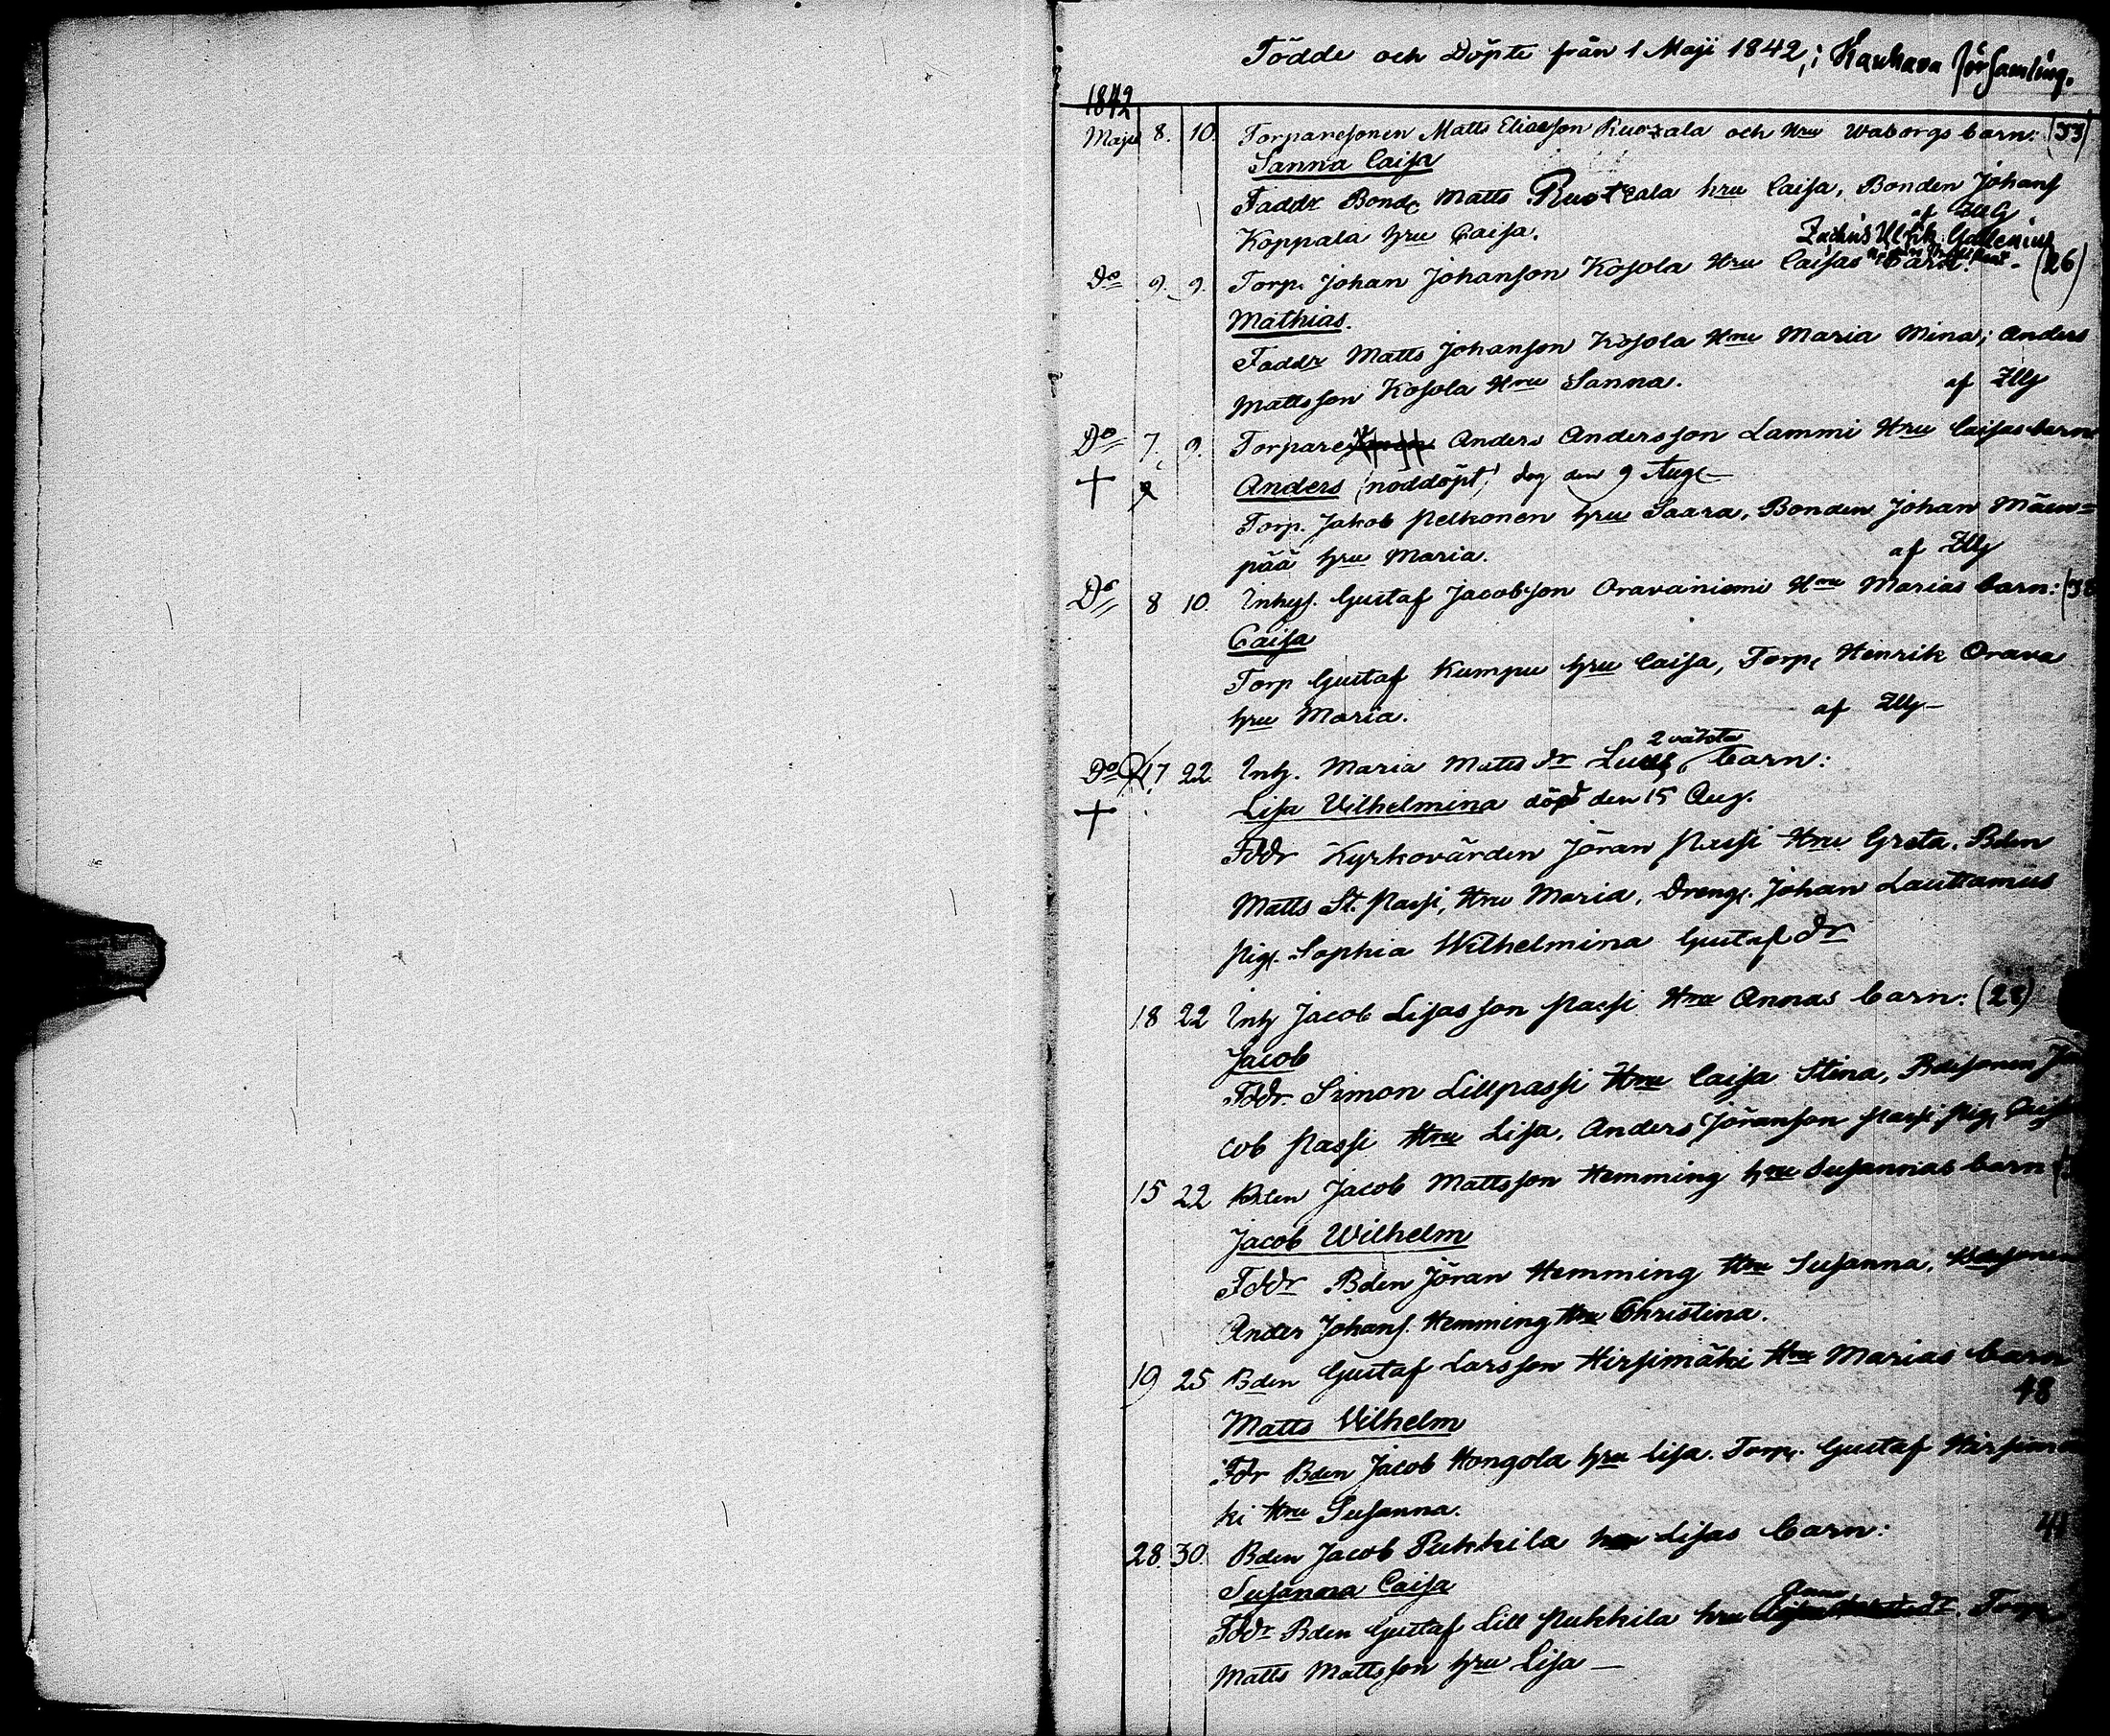 Födde och Döpte från 1 Maji 1842, i Kauhava församling.
1842
Maji 8. 10. Torparesonen Matts Eliasson Ruotzala och Hru Waborgs barn: (33)
Sanna Caisa
Faddr Bond Matts Ruotzala hru Caisa, Bonden Johans
Koppala hru Caisa. af ZUG
Zachris Ulrik Gallenius
Do 9. 9. Torp. Johan Johanson Kosola Hru Caisas barn. (26)
Mathias.
Faddr Matts Johanson Kosola Hru Maria Mina; Anders
Mattsson Kosola Hru Sanna. af ZUG
Do 7. 9. Torpare Anders Andersson Lammi Hru Caisas barn
+ Anders (nöddöpt) dog den 9 Aug
Torp. Jakob Pelkonen hru Saara, Bonden Johan Mäen=
pää hru Maria. af ZUG
Do 8 10. Inhys. Gustaf Jacobson Oravainiemi Hru Marias barn: (38
Caisa
Torp Gustaf Kumpu hru Caisa, Torp, Henrik Orava
hru Maria. af ZUG
Do 17 22 Inh. Maria Matts dr 2 oäkta barn:
+ Lisa Vilhelmina döpt den 15 Aug.
Fddr Kyrkovärden Jöran Passi Hru Greta. Bden
Matts St. Passi, Hru Maria, Dreng. Johan Lauttamus
Pig. Sophia Wilhelmina Gustaf dr
18 22 Inh Jacob Lisasson Passi Hru Annas barn: (28)
Jacob
Fddr. Simon Lillpassi Hru Caisa Stina, Bdesonen Ja
cob Passi Hru Lisa, Anders Jöranson Passi, Pig Caisa
15 22 Bden Jacob Mattsson Hemming hru Susannas barn
Jacob Wilhelm
Fddr Bden Jöran Hemming Hru Susanna, Bdesonen
Ander Johans. Hemming Hru Christina.
19 25 Bden Gustaf Larsson Hirsimäki Hru Marias barn
48
Matts Vilhelm
Fdr Bden Jacob Hongola hru Lisa. Torp. Gustaf Hirsimä
ki Hru Susanna.
28. 30. Bden Jacob Pukkila hru Lisas barn: 41
Susanna Caisa
Fddr Bden Gustaf Lill Pukkila hru Anna Torp
Matts Mattsson hru Lisa —